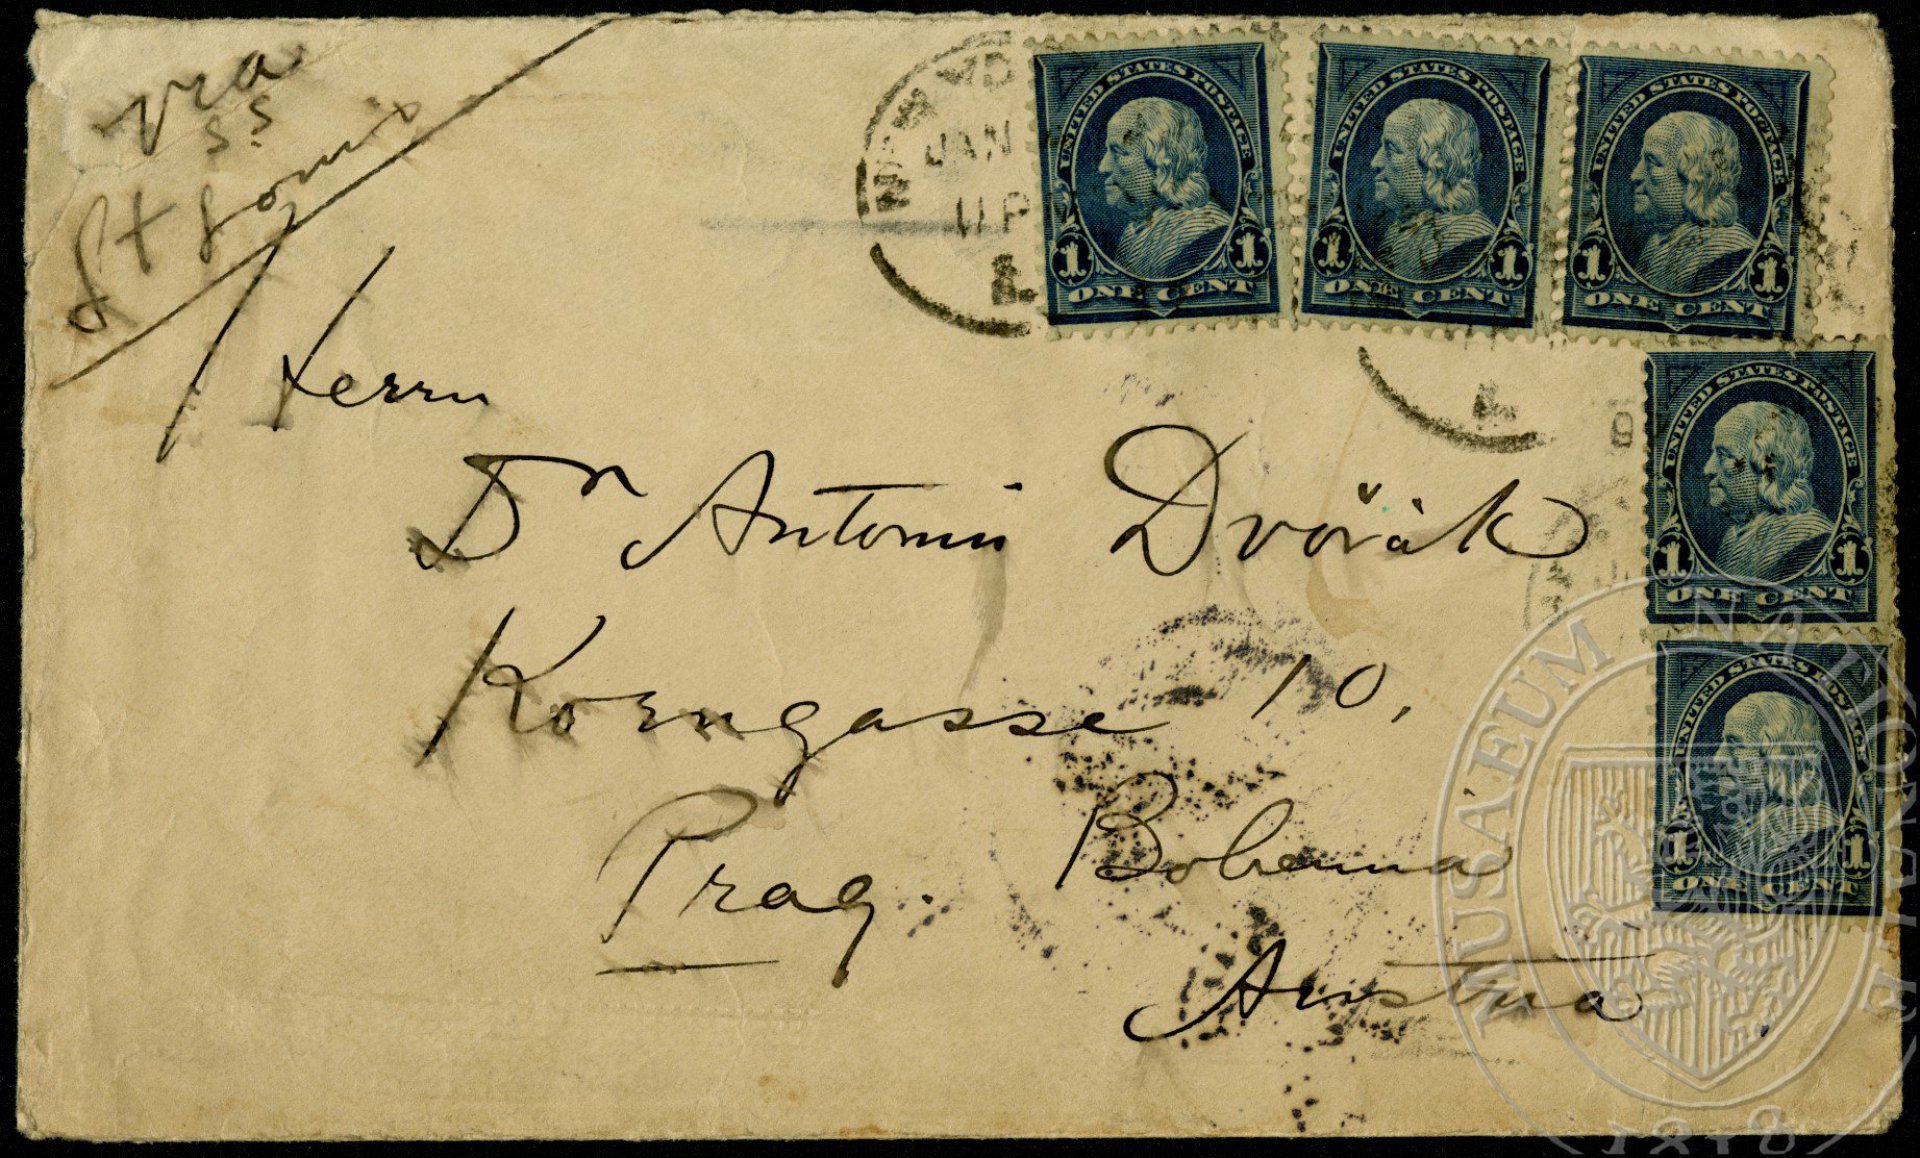 via
S.S.
St Louis
Herrn
Dr Antonín Dvořák
Korngasse 10,
Prag. Bohemia
Austria
NEW YORK
JAN
11 P
UNITED STATES POSTAGE
1 1
ONE CENT
UNITED STATES POSTAGE
1 1
ONE CENT
UNITED STATES POSTAGE
1 1
ONE CENT
UNITED STATES POSTAGE
1 1
ONE CENT
UNITED STATES POSTAGE
1 1
ONE CENT
MUSAEUM NATIONALE
1818